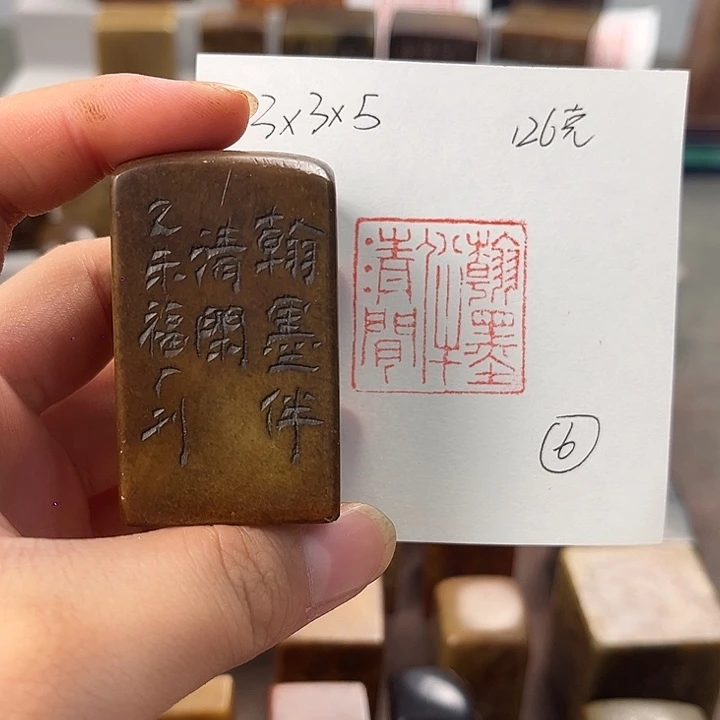 3×3×5 126克
翰墨伴
清閑
乙未福厂刊
翰墨
伴
清閒
6